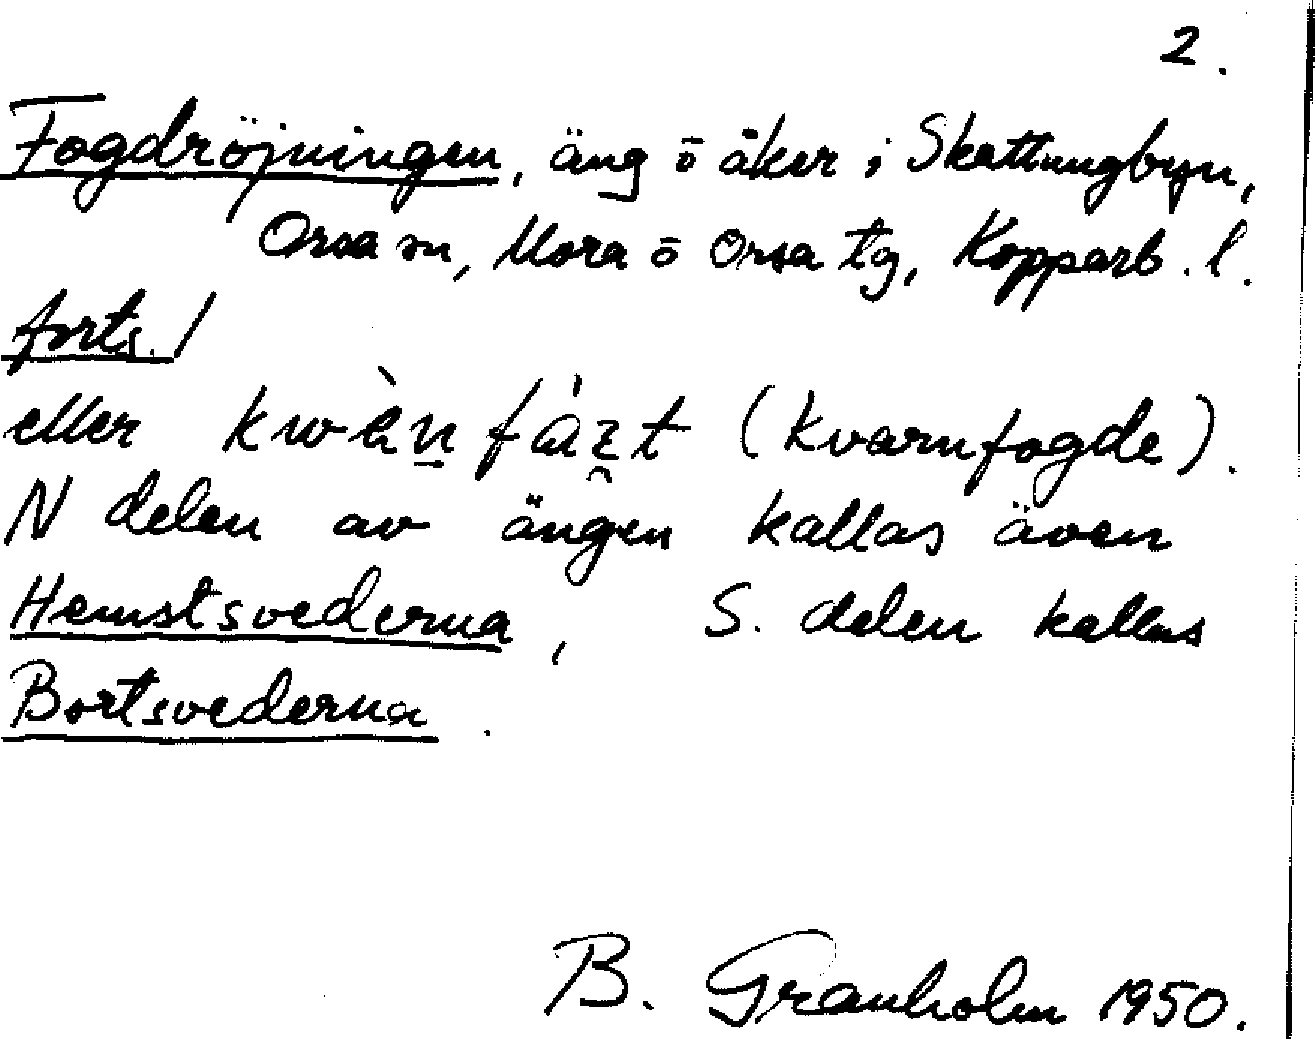 2.
Fogdröjningen, äng ō åker i Skattungbyn,
Orsa sn, Mora ō Orsa tg, Kopparb. l.
forts./
eller (kvarnfogde).
N delen av ängen kallas även
Hemstsvederna, S. delen kallas
Bortsvederna.
B. Granholm 1950.